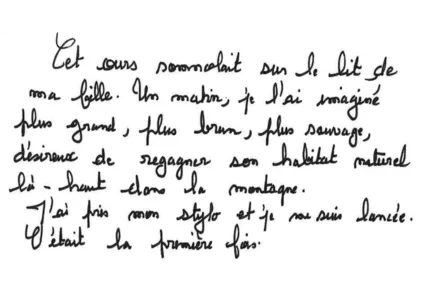 Cet ours somnolait sur le lit de
ma fille. Un matin, je l'ai imaginé
plus grand, plus brun, plus sauvage,
désireux de regagner son habitat naturel
là-haut dans la montagne.
J'ai pris mon stylo et je me suis lancée.
C'était la première fois.